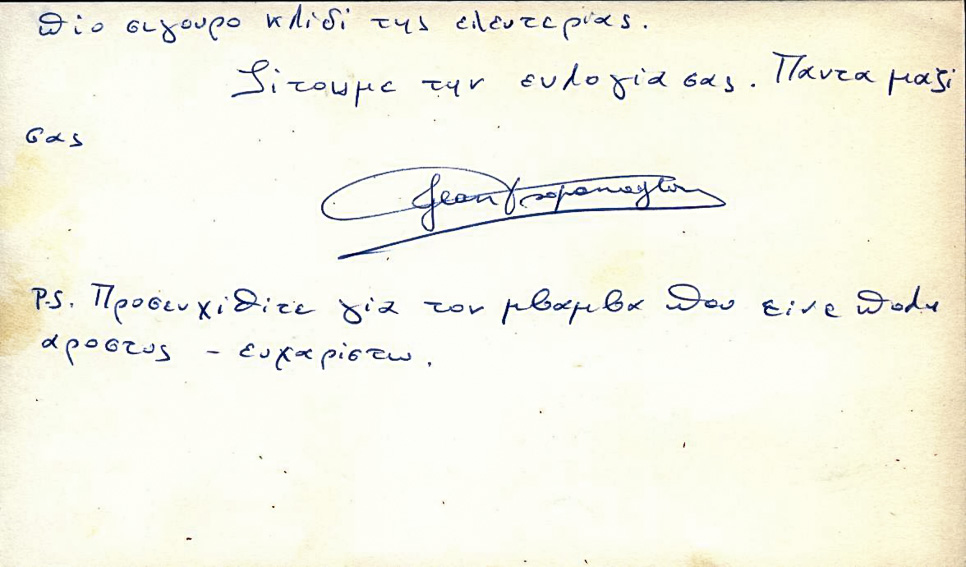 πίο σιγουρο κλιδί της ελευτερίας.
Ζίτουμε την ευλογία σας. Παντα μαζί
σας
Jean
P.S. Προσευχίθιτε γία τον μπαμπα που είνε πολυ
αροστυς - ευχαρίστω.